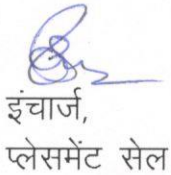 इंचार्ज,
प्लेसमेंट सेल